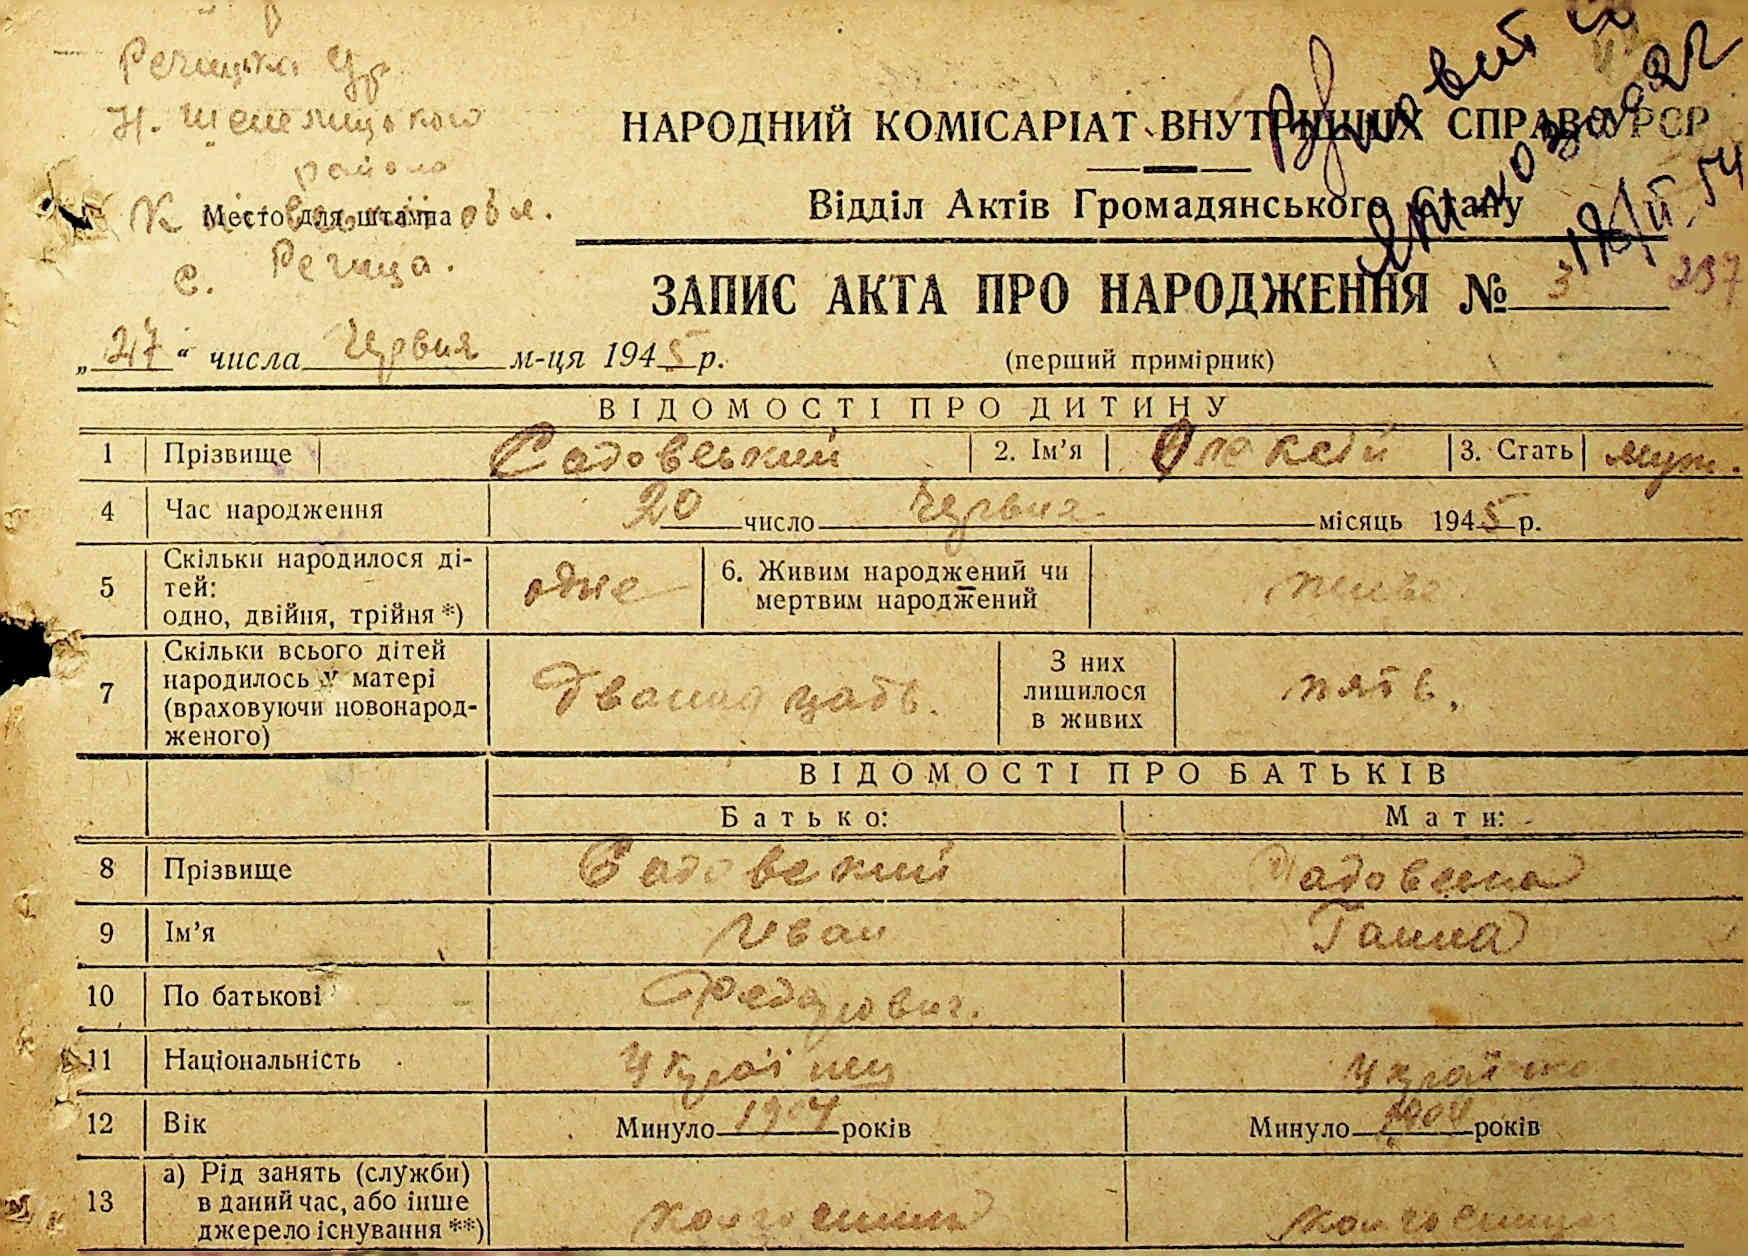 Речицька
Н. Шепелицького
району
К
Место для штампа
обл.
с. Речица.
НАРОДНИЙ КОМІСАРІАТ ВНУТРІШНІХ СПРАВ УРСР
Відділ Актів Громадянського Стану
ЗАПИС АКТА ПРО НАРОДЖЕННЯ № 3
237
„27“ числа Червня м-ця 1945 р.
(перший примірник)
ВІДОМОСТІ ПРО ДИТИНУ
1 Прізвище Садовський 2. Ім’я Олексій 3. Стать муж.
4 Час народження 20 число Червня місяць 1945 р.
5 Скільки народилося ді-
тей:
одно, двійня, трійня *) одне
6. Живим народжений чи
мертвим народжений живе
7 Скільки всього дітей
народилось у матері
(враховуючи новонарод-
женого) Дванадцать.
З них
лишилося
в живих пять.
ВІДОМОСТІ ПРО БАТЬКІВ
Батько: Мати:
8 Прізвище Садовский Садовська
9 Ім’я Иван Ганна
10 По батькові Федорович.
11 Національність Украінец Українка
12 Вік Минуло 1904 років Минуло 1904 років
13 а) Рід занять (служби)
в даний час, або інше
джерело існування **) колгоспник колгоспниця